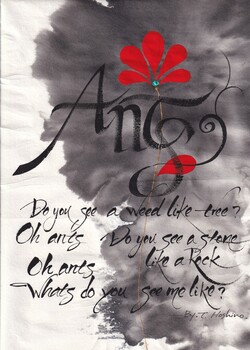 Ants
Do you see a weed like-tree?
Oh ants Do you see a stone
Oh ants like a Rock
Whats do you see me like?
By. T. Hoshino.